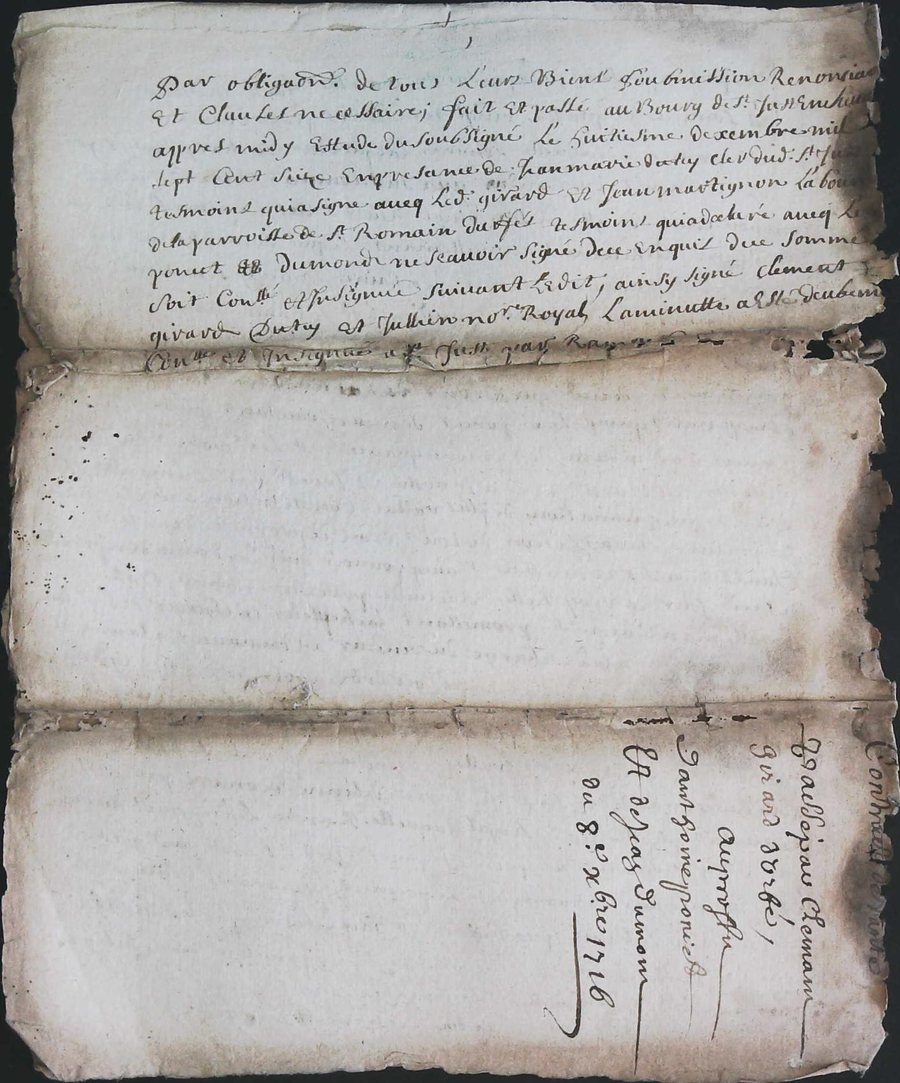 Par obligaõn. de tous Leurs Biens Soubmission Renoncia
Et Clauses necessaire; fait Et passé au Bourg de St. Just En
appres midy Estude du soubsigné Le huitiesme dexembre mil
sept Cent seize En presance de Jean marie dutey clerc dud. St. Ju
tesmoins qui a signé aveq Led. girard Et Jean martignon Labou
de la parroisse de St. Romain tesmoins qui a declaré aveq Le
poncet Dumond ne scavoir signé de ce Enquis de ce somme
soit Conllé et Insignué suivant Ledit, ainsy signé Clement
girard Dutey Et Jullien nore. Royal, La minutte a Esté deubem
Conllé et Insignué a St. Just par
Contract de
passé par Clemant
girard
au proffit
d'anthoine poncet
Et de Jean dumon
du 8e. xbre 1716